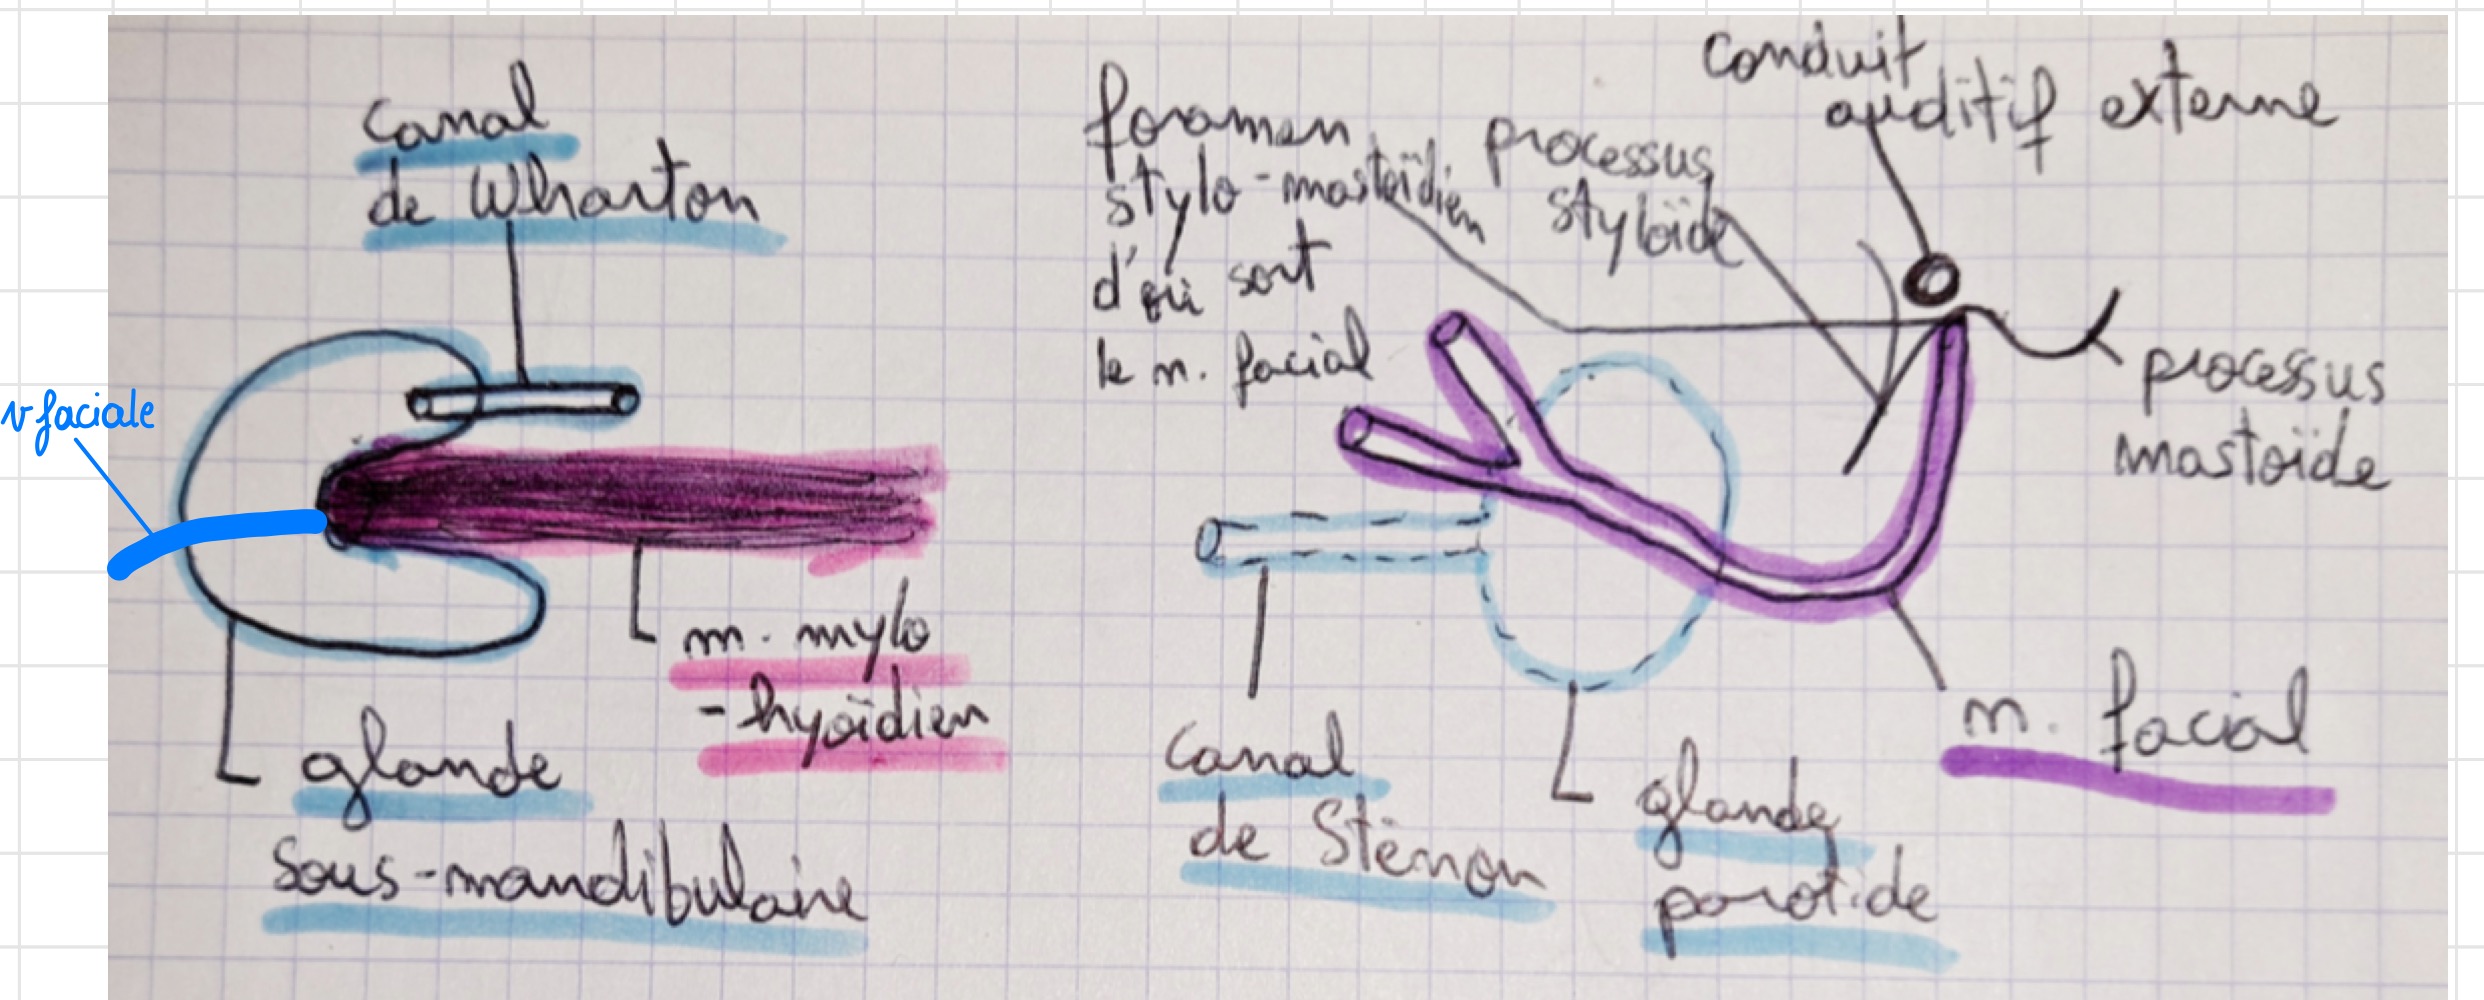 canal
de Wharton
v faciale
m. mylo
-hyoïdien
glande
sous-mandibulaire
foramen
stylo-mastoïdien
d'où sort
le n. facial
processus
styloïde
conduit
auditif externe
processus
mastoïde
n. facial
canal
de Sténon
glande
parotide